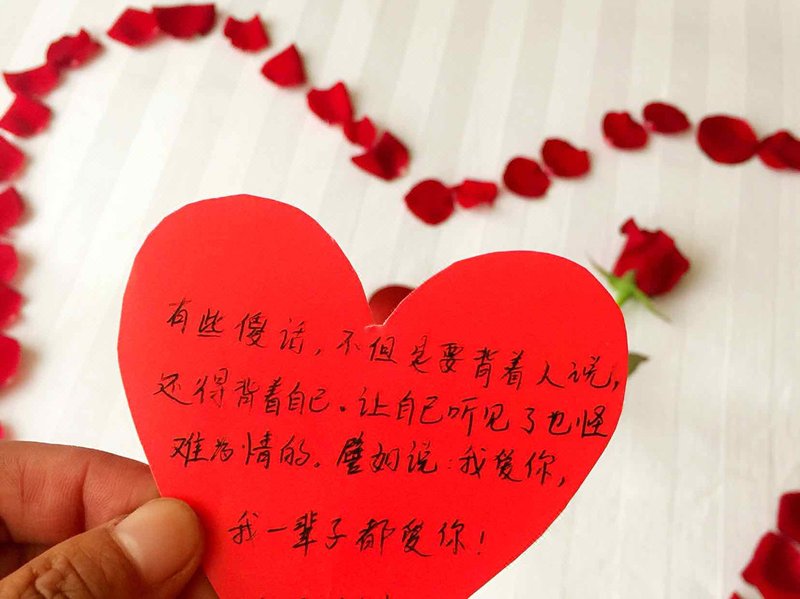 有些傻话，不但是要背着人说，
还得背着自己。让自己听见了也怪
难为情的。譬如说：我爱你，
我一辈子都爱你！